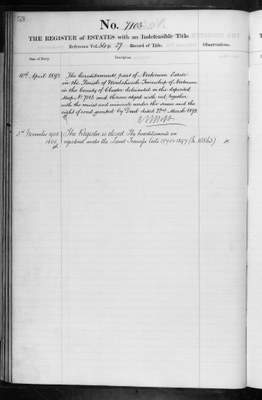 53
No. 7103
THE REGISTER of ESTATES with an Indefeasible Title.
Reference Vol. 27 Record of Title.
Observations.
Date of Entry.
Description
10th April 1893
The hereditaments part of Estate
in the Parish of Township of
in the County of Chester delineated on the deposited
Map No 7103 and thereon edged with red together
with the mines and minerals under the same and the
right of road granted by Deed dated 22nd March 1893
November
The Register is closed. The hereditaments are
registered under the Land Transfer Acts 1875 & 1897